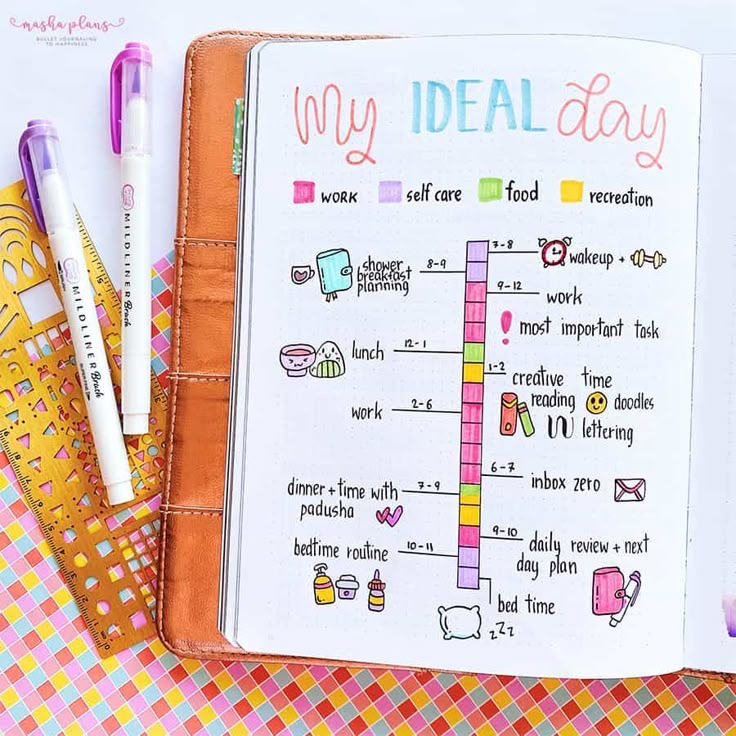 masha plans
BULLET JOURNALING
TO HAPPINESS
My IDEAL day
WORK self care food recreation
7-8 wakeup +
8-9 shower
breakfast
planning
9-12 work
! most important task
lunch 12-1
1-2 creative time
reading doodles
lettering
work 2-6
6-7 inbox zero
dinner + time with 7-9
padusha
9-10 daily review + next
day plan
bedtime routine 10-11
bed time
zZZ
MILDLINER Brush
MILDLINER Brush